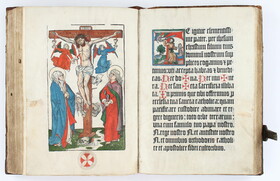 E igitur clementissi
me pater, per iesum
christum filium tuum
dominum nostrum sup
plices rogamus,
accepta habeas et benedi
cas. Hec do✠na. Hec
Hec san✠cta sacrificia illiba
ta. In primis que tibi offerimus p
ecclesia tua sancta catholica: quam
pacificare custodire adunare et re
gere digneris: toto orbe terrarum:
una cum famulo tuo papa nostro
N. rege nostro N. et antistite nostro
N. et omnibus orthodoxis catholice
et apostolice fidei cultoribus.